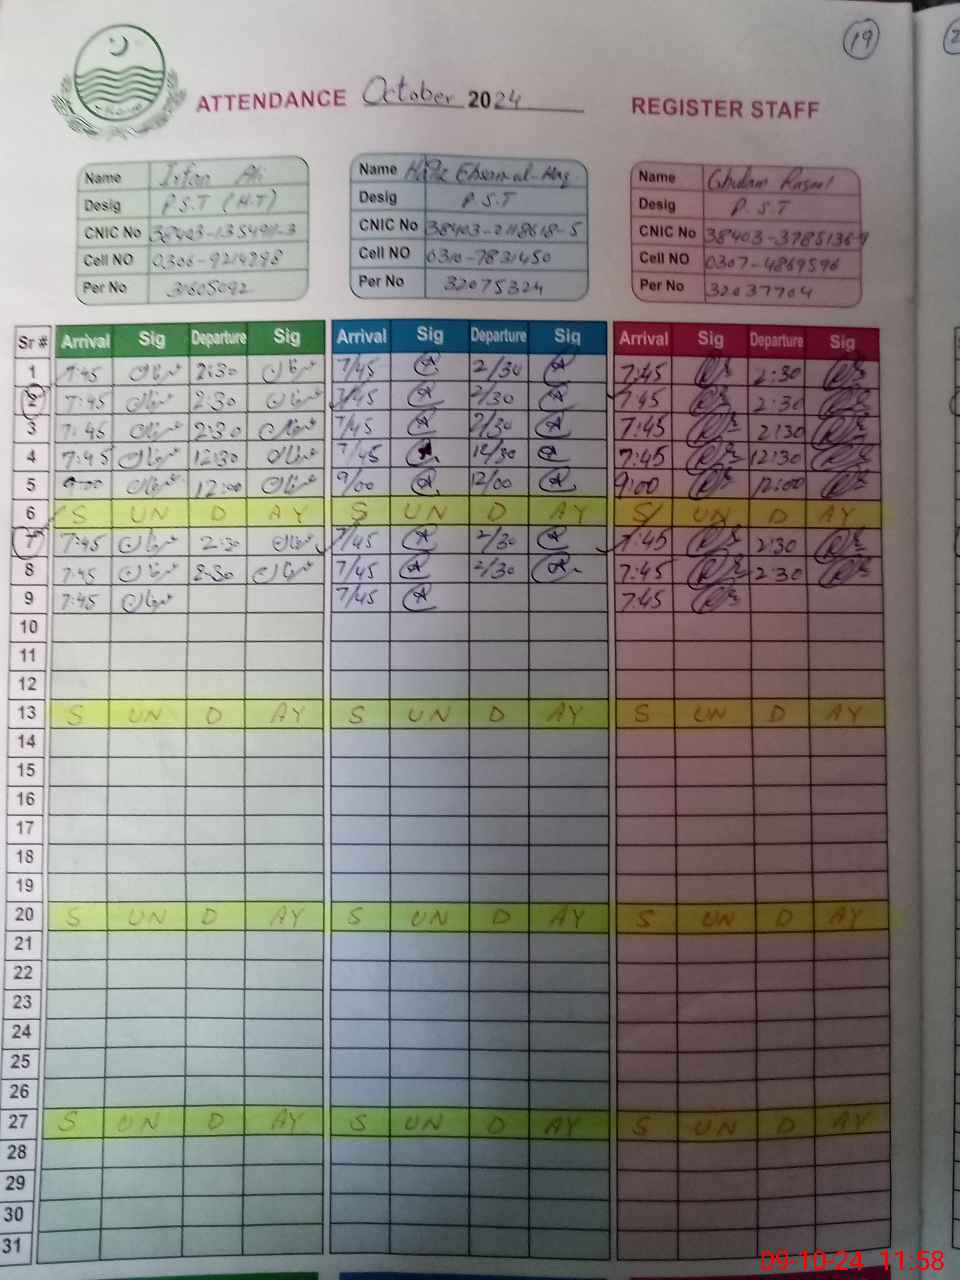 19
ATTENDANCE October 2024 REGISTER STAFF
Name Irfan Ali
Desig P.S.T (H.T)
CNIC No
Cell NO 0306-9214298
Per No 31605092
Name Hafiz
Desig P.S.T
CNIC No 38403-2118618-5
Cell NO 0310-7831450
Per No 32075324
Name Ghulam Rasool
Desig P.S.T
CNIC No
Cell NO 0307-4869596
Per No 32037704
Sr # Arrival Sig Departure Sig Arrival Sig Departure Sig Arrival Sig Departure Sig
1 7:45 2:30 7/45 2/30 7:45 2:30
2 7:45 2:30 7/45 2/30 7:45 2:30
3 7:45 2:30 7/45 2/30 7:45 2:30
4 7:45 12:30 7/45 12/30 7:45 12:30
5 9:00 12:00 9/00 12/00 9:00 12:00
6 S UN D AY S UN D AY S UN D AY
7 7:45 2:30 7/45 2/30 7:45 2:30
8 7:45 2:30 7/45 2/30 7:45 2:30
9 7:45 7/45 7:45
10
11
12
13 S UN D AY S UN D AY S UN D AY
14
15
16
17
18
19
20 S UN D AY S UN D AY S UN D AY
21
22
23
24
25
26
27 S UN D AY S UN D AY S UN D AY
28
29
30
31
09-10-24 11:58